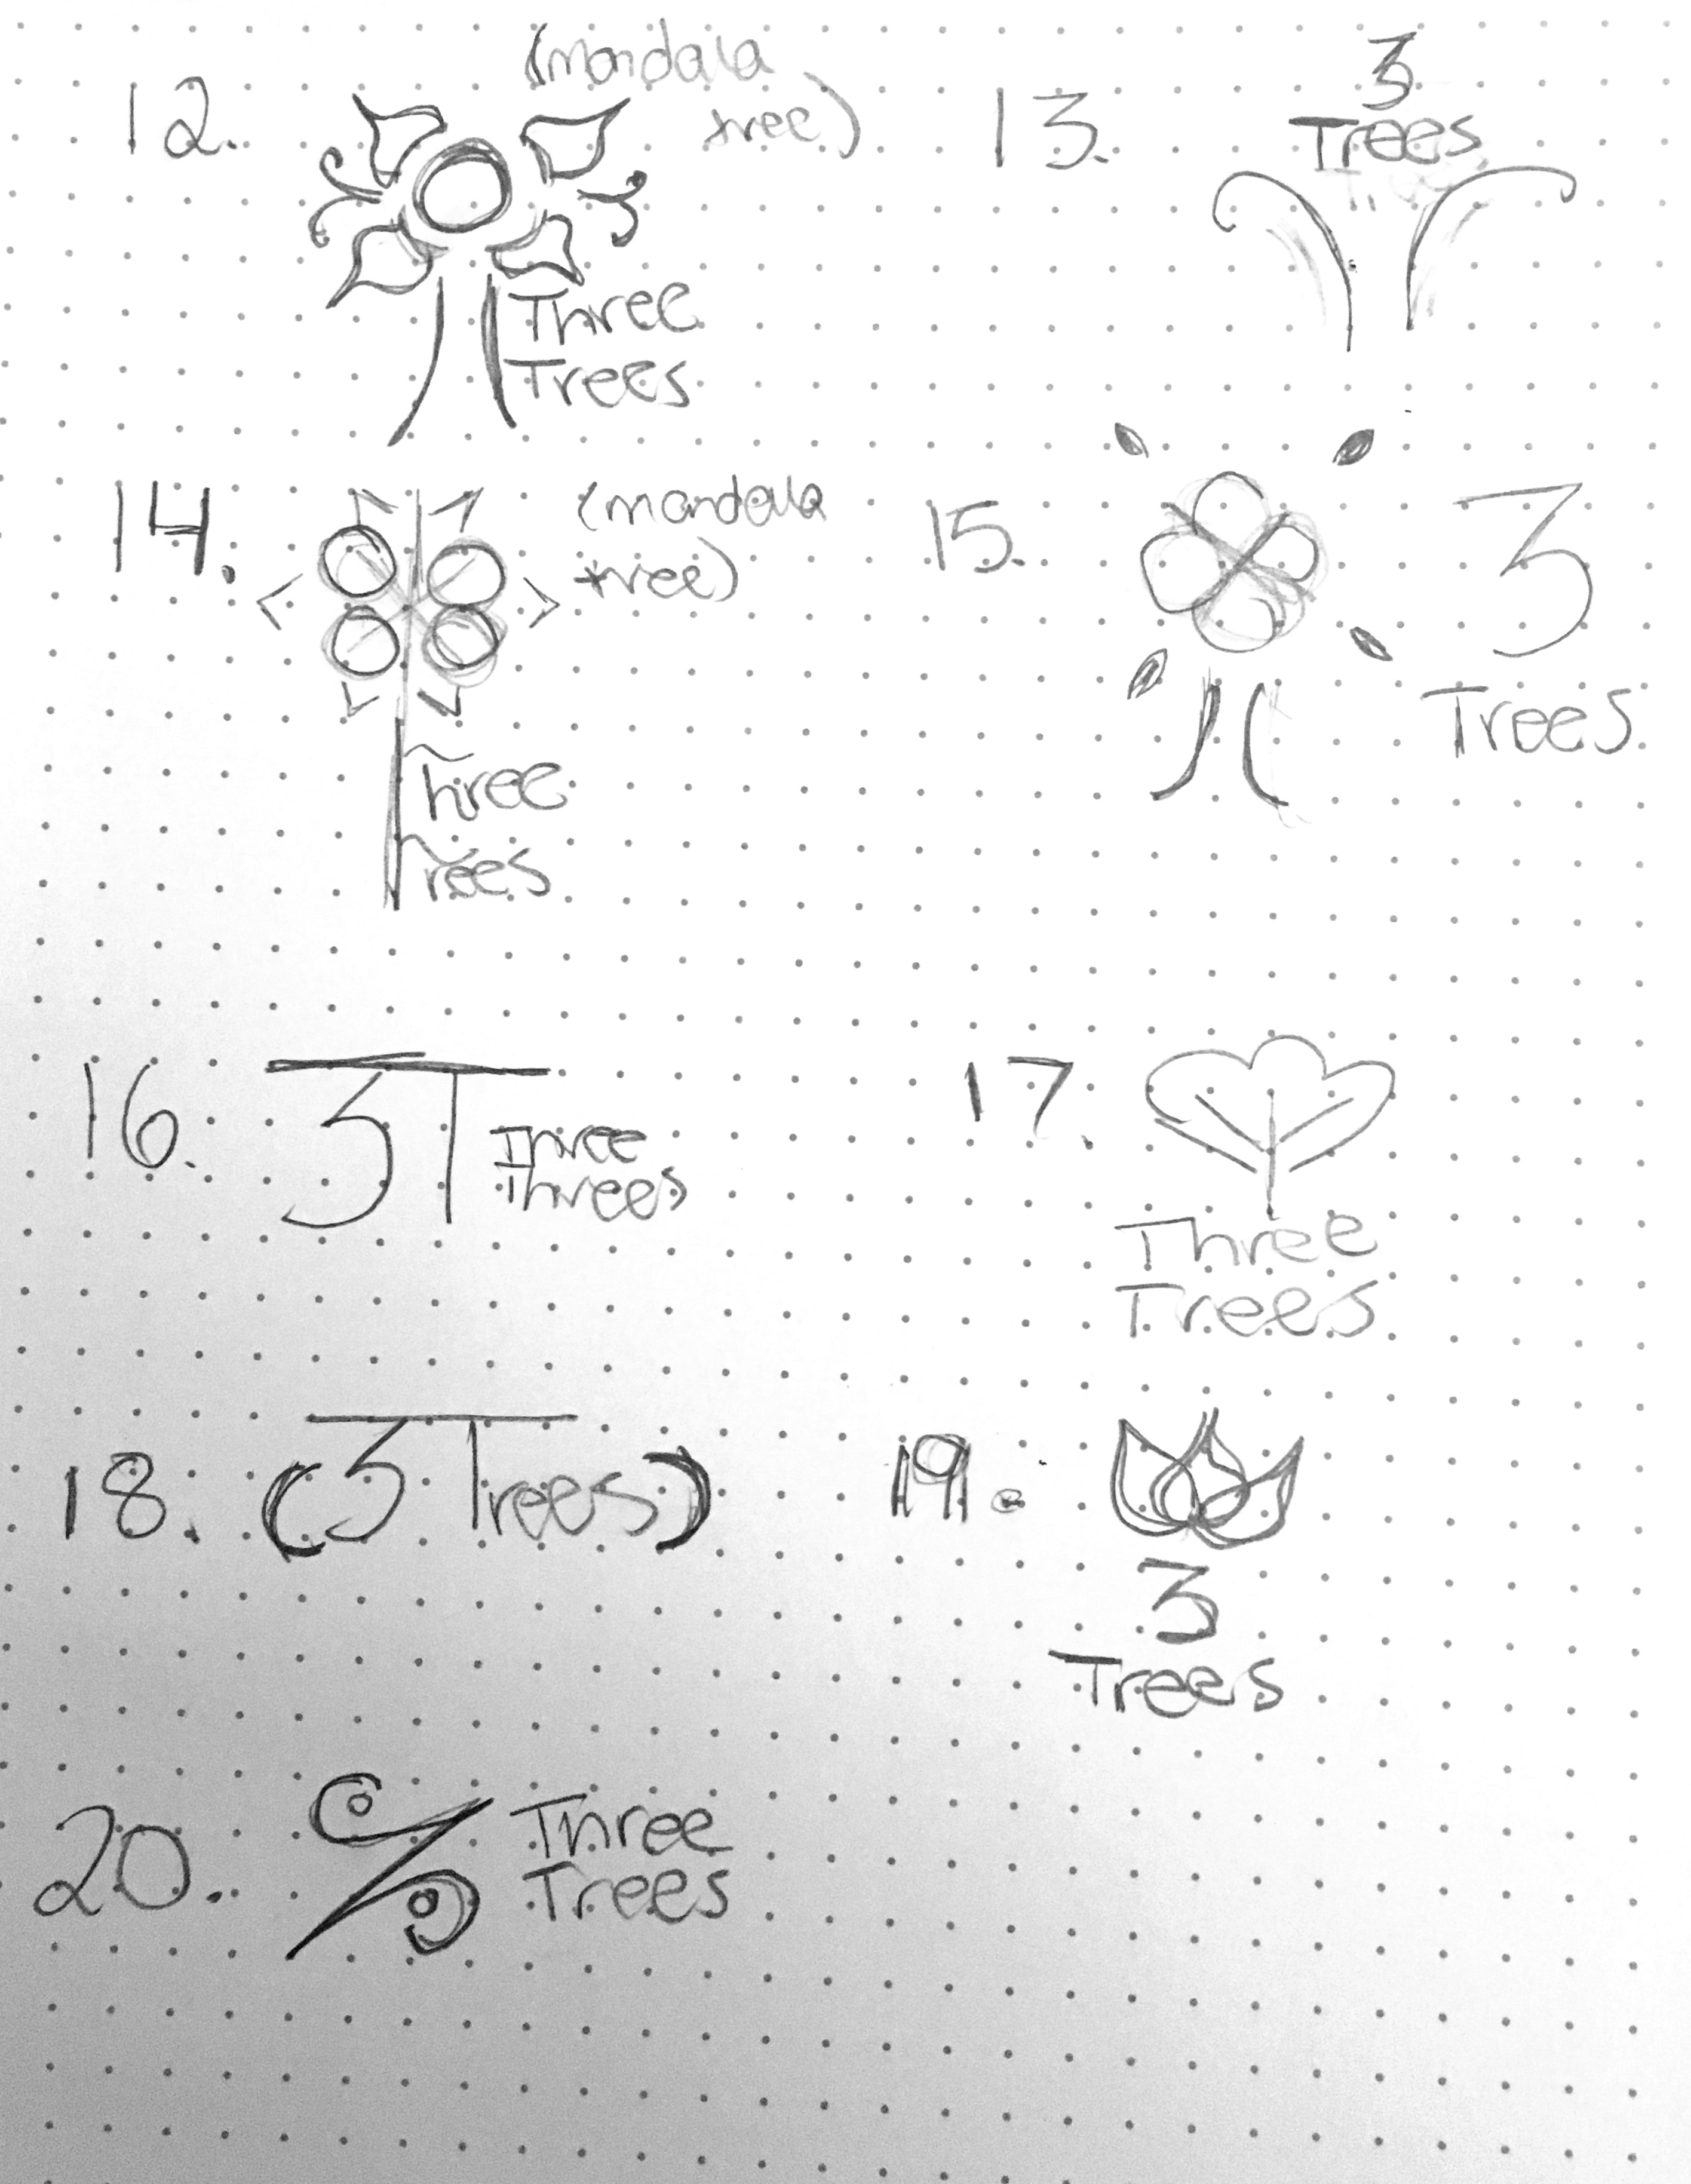 12.
(mandala
tree)
Three
Trees
13.
3
Trees
14.
(mandala
tree)
Three
Trees
15.
3
Trees
16.
3T
Three
Threes
17.
Three
Trees
18.
(3 Trees)
19.
3
Trees
20.
Three
Trees